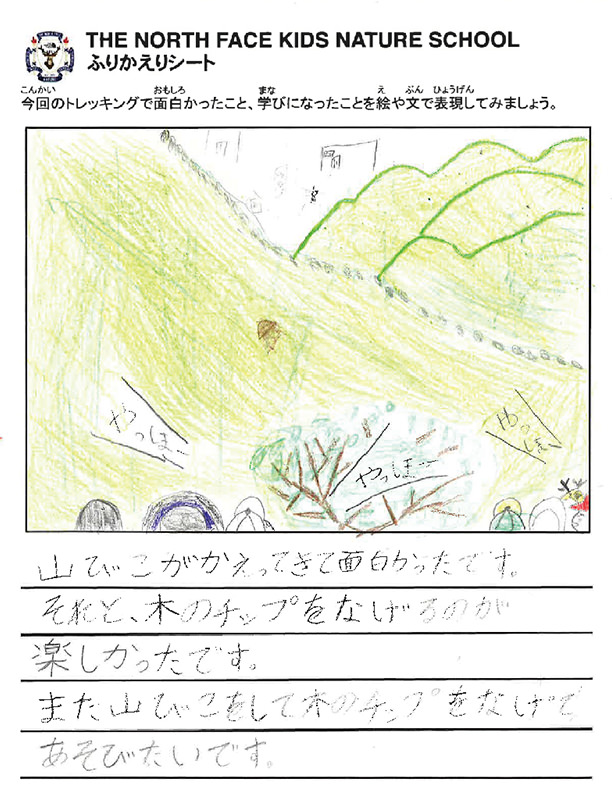 THE NORTH FACE KIDS NATURE SCHOOL
ふりかえりシート
こんかい おもしろ まな え ぶん ひょうげん
今回のトレッキングで面白かったこと、学びになったことを絵や文で表現してみましょう。
やっほー
やっほー
やっほー
山びこがかえってきて面白かったです。
それと、木のチップをなげるのが
楽しかったです。
また山びこをして木のチップをなげて
あそびたいです。